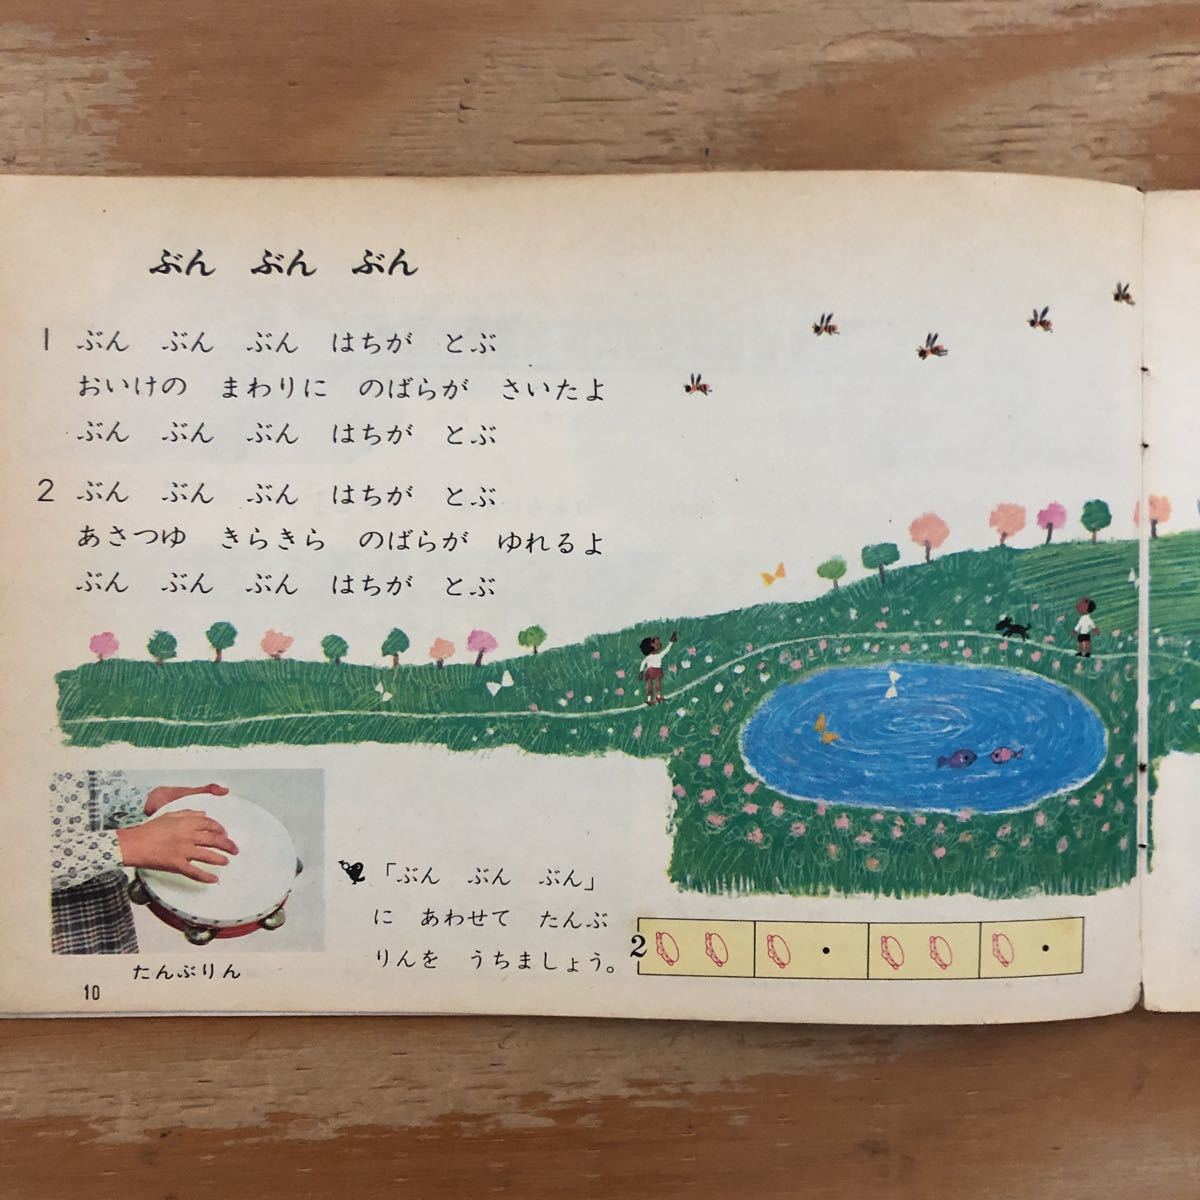 ぶん　ぶん　ぶん
1 ぶん　ぶん　ぶん　はちが　とぶ
おいけの　まわりに　のばらが　さいたよ
ぶん　ぶん　ぶん　はちが　とぶ
2 ぶん　ぶん　ぶん　はちが　とぶ
あさつゆ　きらきら　のばらが　ゆれるよ
ぶん　ぶん　ぶん　はちが　とぶ
たんぶりん
「ぶん　ぶん　ぶん」
に　あわせて　たんぶ
りんを　うちましょう。
2
10